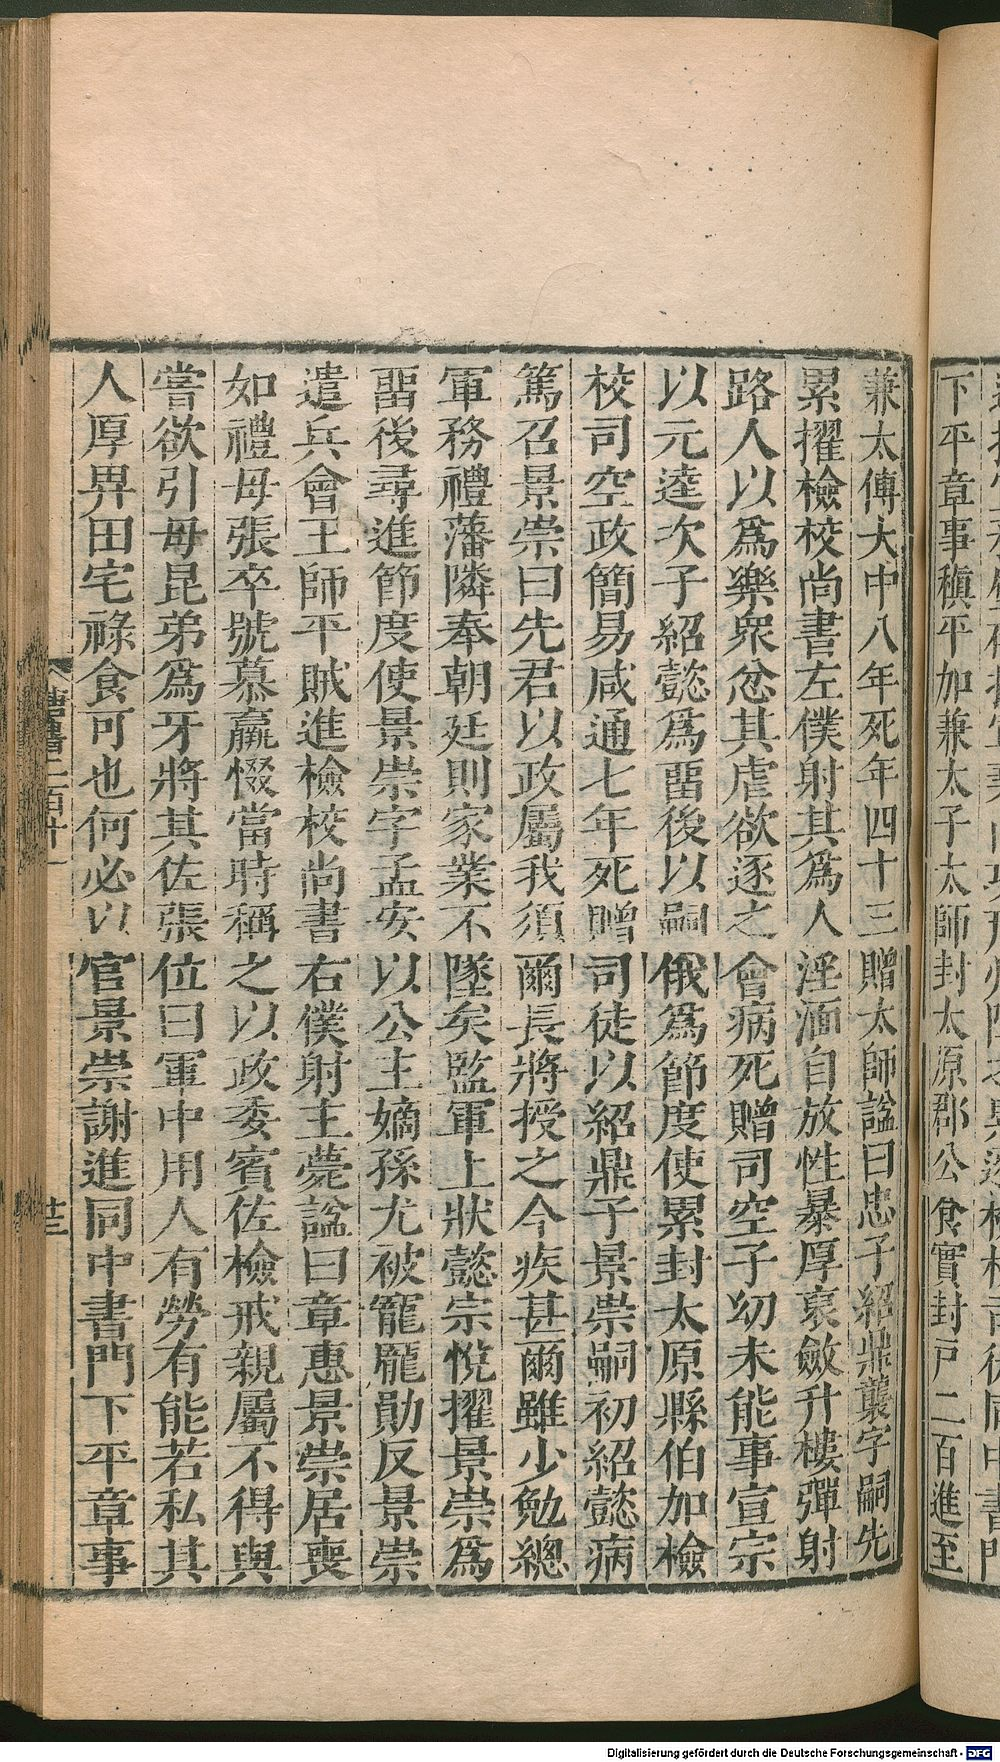 下平章事稹平加兼太子太師封太原郡公食實封戸二百進至
兼太傅大中八年死年四十三贈太師諡曰忠子紹鼎襲字嗣先
累擢檢校尚書左僕射其爲人淫湎自放性暴厚裒斂升樓彈射
路人以爲樂衆忿其虐欲逐之會病死贈司空子幼未能事宣宗
以元逵次子紹懿爲畱後以嗣俄爲節度使累封太原縣伯加檢
校司空政簡易咸通七年死贈司徒以紹鼎子景崇嗣初紹懿病
篤召景崇曰先君以政屬我須爾長將授之今疾甚爾雖少勉總
軍務禮藩隣奉朝廷則家業不墜矣監軍上狀懿宗悅擢景崇爲
畱後尋進節度使景崇字孟安以公主嫡孫尤被寵龐勛反景崇
遣兵會王師平賊進檢校尚書右僕射主薨諡曰章惠景崇居喪
如禮母張卒號慕羸惙當時稱之以政委賓佐檢戒親屬不得與
嘗欲引母昆弟爲牙將其佐張位曰軍中用人有勞有能若私其
人厚畀田宅祿食可也何必以官景崇謝進同中書門下平章事
唐書二百十一
廿三
Digitalisierung gefördert durch die Deutsche Forschungsgemeinschaft - DFG